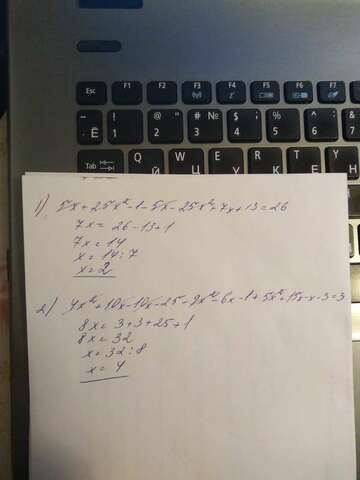 Esc F1 F2 F3 F4 F5 F6 F7
Ё ! 1 " 2 № # 3 $ 4 % 5 6 7
Tab Q Й W Ц E У
1) 5x + 25x² - 1 - 5x - 25x² + 7x + 13 = 26
7x = 26 - 13 + 1
7x = 14
x = 14 : 7
x = 2
2) 4x² + 10x - 10x - 25 - 9x² - 6x - 1 + 5x² + 15x - x - 3 = 3
8x = 3 + 3 + 25 + 1
8x = 32
x = 32 : 8
x = 4